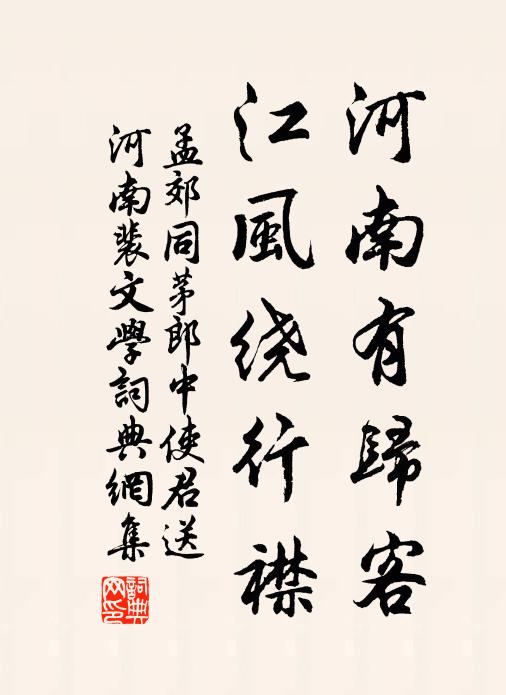 河南有歸客
江風绕行襟
孟郊同茅郎中使君送
河南裴文學詞典網集
詞典
网印